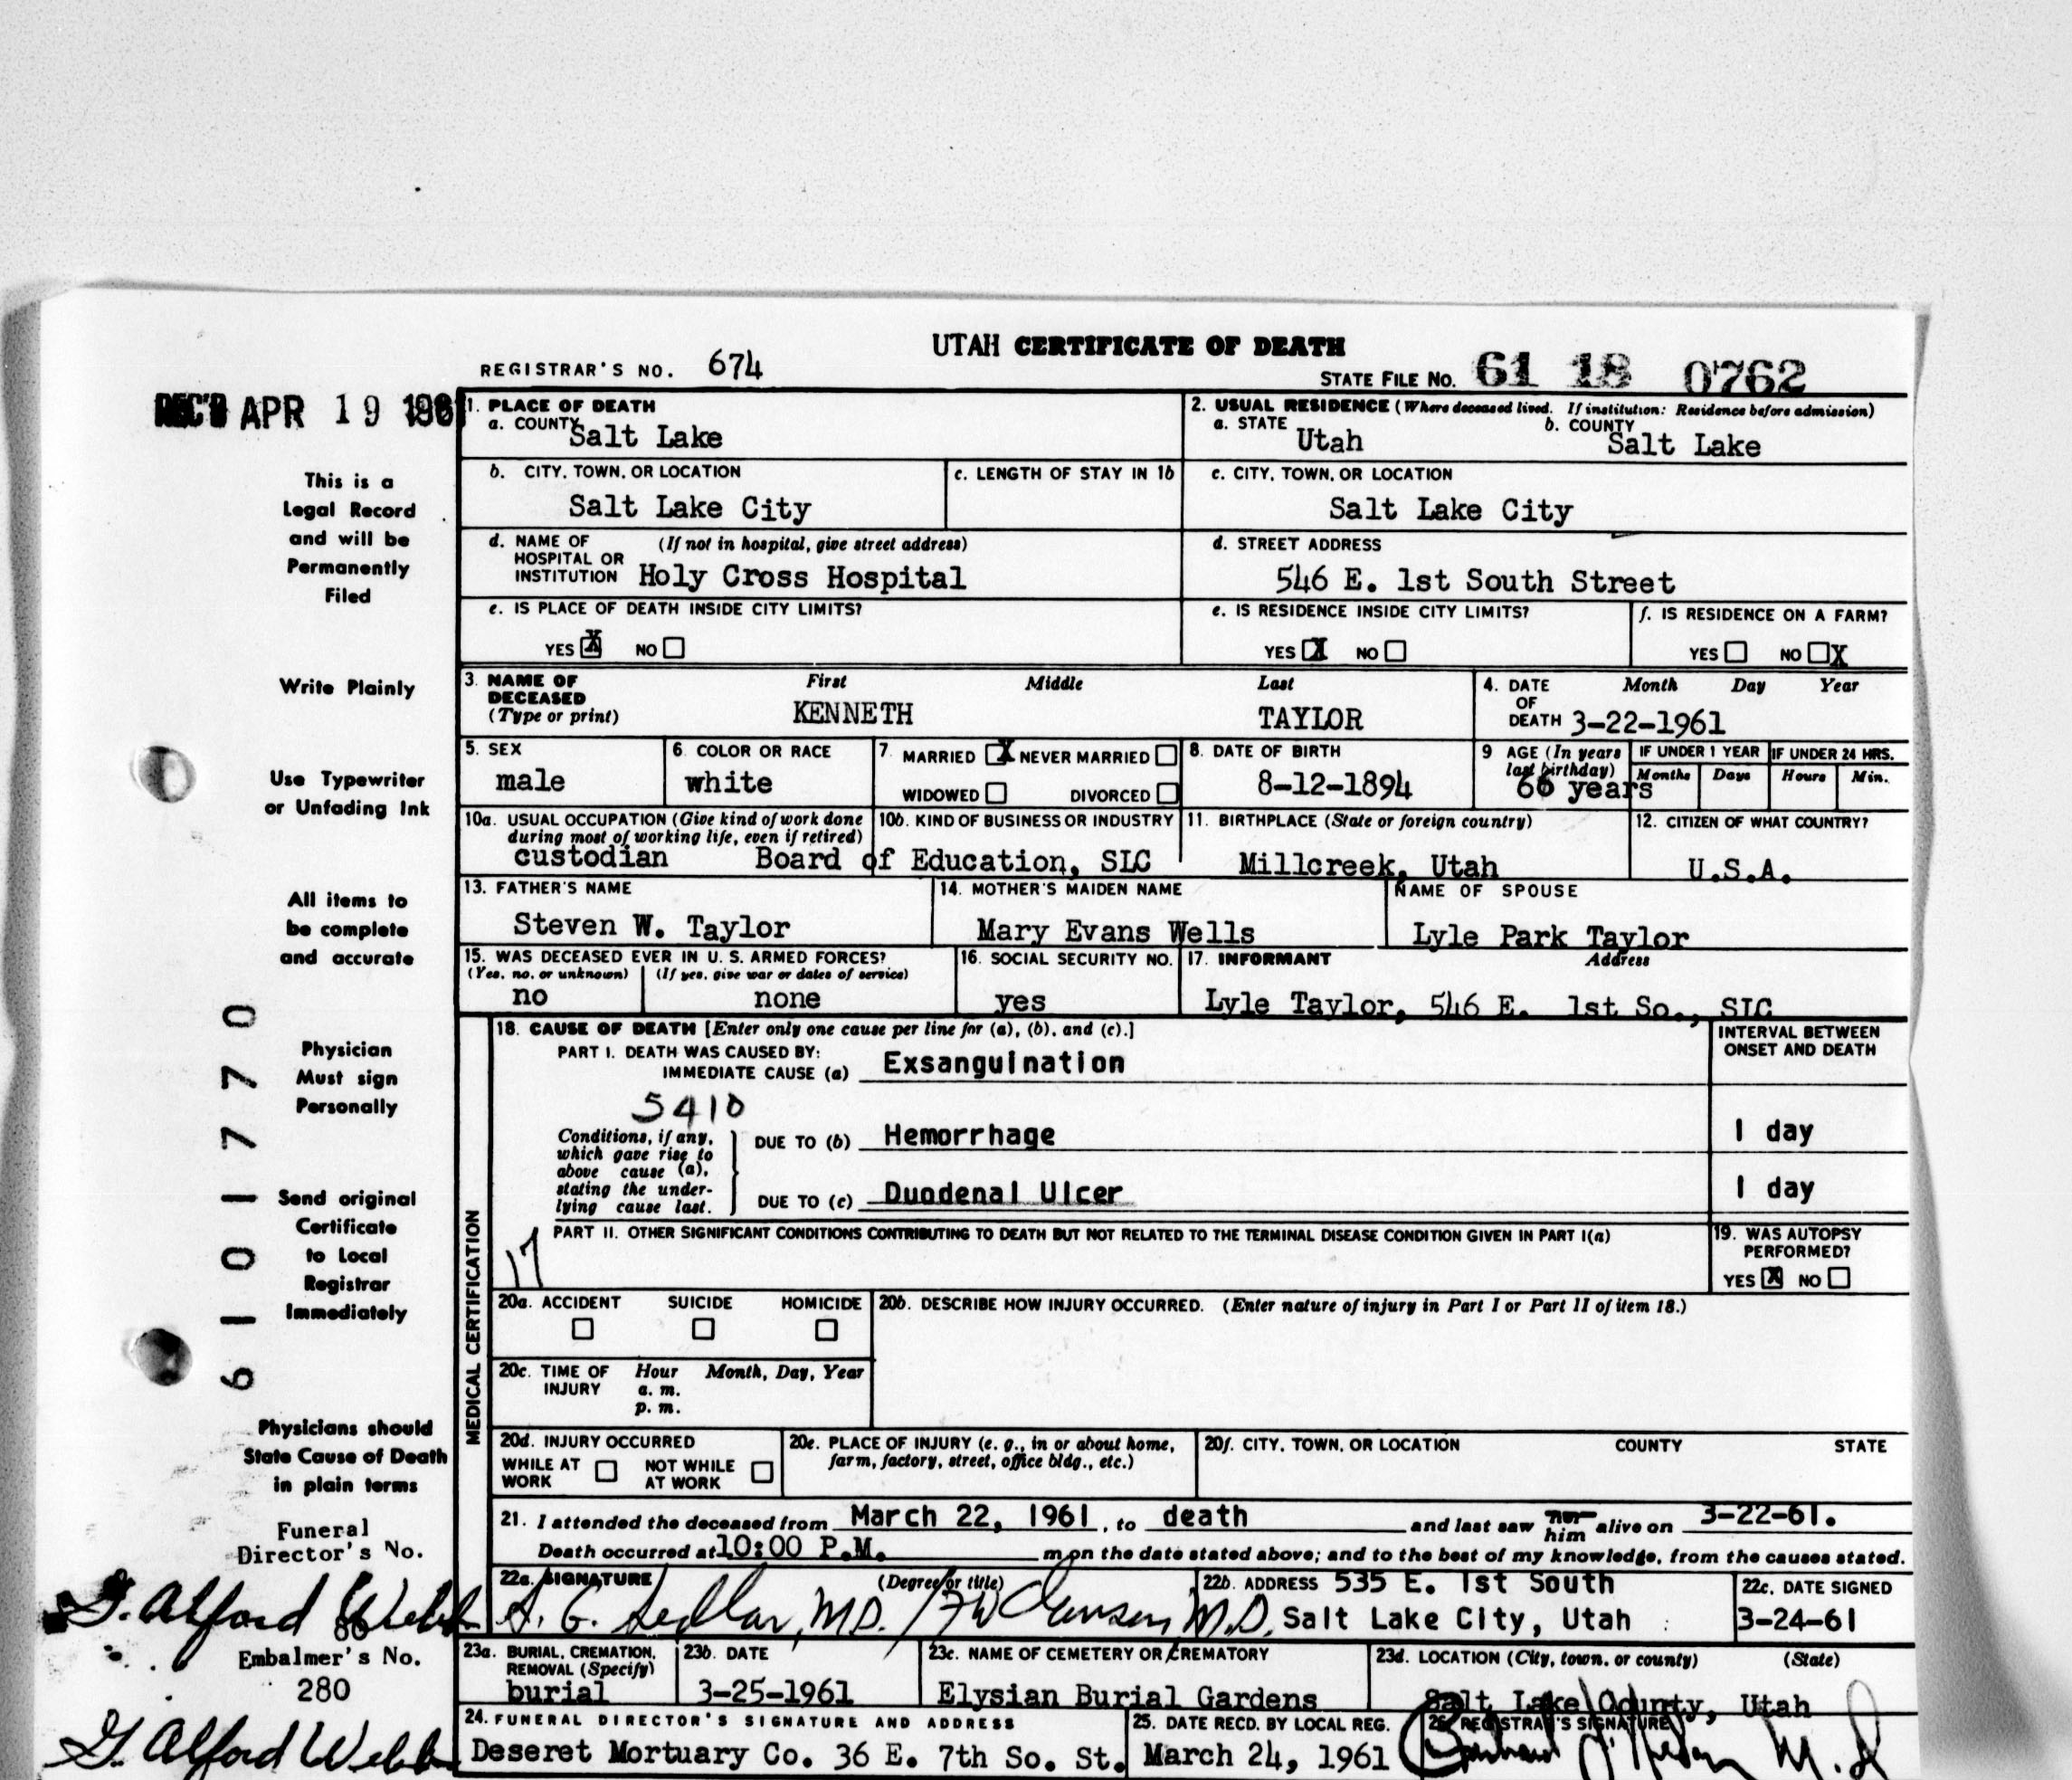 UTAH CERTIFICATE OF DEATH
REGISTRAR'S NO. 674
STATE FILE No. 61 18 0762
REC'D APR 19 1961
This is a
Legal Record
and will be
Permanently
Filed
Write Plainly
Use Typewriter
or Unfading Ink
All items to
be complete
and accurate
Physician
Must sign
Personally
Send original
Certificate
to Local
Registrar
Immediately
Physicians should
State Cause of Death
in plain terms
Funeral
Director's No.
G. Alford Webb
86
Embalmer's No.
280
G. Alford Webb
6101770
1. PLACE OF DEATH
a. COUNTY Salt Lake
2. USUAL RESIDENCE (Where deceased lived. If institution: Residence before admission)
a. STATE Utah b. COUNTY Salt Lake
b. CITY, TOWN, OR LOCATION
Salt Lake City
c. LENGTH OF STAY IN 1b
c. CITY, TOWN, OR LOCATION
Salt Lake City
d. NAME OF (If not in hospital, give street address)
HOSPITAL OR
INSTITUTION Holy Cross Hospital
d. STREET ADDRESS
546 E. 1st South Street
e. IS PLACE OF DEATH INSIDE CITY LIMITS?
YES X NO
e. IS RESIDENCE INSIDE CITY LIMITS?
YES X NO
f. IS RESIDENCE ON A FARM?
YES NO X
3. NAME OF DECEASED (Type or print)
First Middle Last
KENNETH TAYLOR
4. DATE OF DEATH Month Day Year
3-22-1961
5. SEX
male
6. COLOR OR RACE
white
7. MARRIED X NEVER MARRIED
WIDOWED DIVORCED
8. DATE OF BIRTH
8-12-1894
9 AGE (In years last birthday)
66 years
IF UNDER 1 YEAR IF UNDER 24 HRS.
Months Days Hours Min.
10a. USUAL OCCUPATION (Give kind of work done
during most of working life, even if retired)
custodian
10b. KIND OF BUSINESS OR INDUSTRY
Board of Education, SLC
11. BIRTHPLACE (State or foreign country)
Millcreek, Utah
12. CITIZEN OF WHAT COUNTRY?
U.S.A.
13. FATHER'S NAME
Steven W. Taylor
14. MOTHER'S MAIDEN NAME
Mary Evans Wells
NAME OF SPOUSE
Lyle Park Taylor
15. WAS DECEASED EVER IN U. S. ARMED FORCES?
(Yes, no, or unknown) (If yes, give war or dates of service)
no none
16. SOCIAL SECURITY NO.
yes
17. INFORMANT Address
Lyle Taylor, 546 E. 1st So., SLC
MEDICAL CERTIFICATION
18. CAUSE OF DEATH [Enter only one cause per line for (a), (b), and (c).]
INTERVAL BETWEEN
ONSET AND DEATH
PART I. DEATH WAS CAUSED BY:
IMMEDIATE CAUSE (a) Exsanguination
5410
Conditions, if any,
which gave rise to
above cause (a),
stating the under-
lying cause last.
DUE TO (b) Hemorrhage 1 day
DUE TO (c) Duodenal Ulcer 1 day
17
PART II. OTHER SIGNIFICANT CONDITIONS CONTRIBUTING TO DEATH BUT NOT RELATED TO THE TERMINAL DISEASE CONDITION GIVEN IN PART I(a)
19. WAS AUTOPSY
PERFORMED?
YES X NO
20a. ACCIDENT SUICIDE HOMICIDE
20b. DESCRIBE HOW INJURY OCCURRED. (Enter nature of injury in Part I or Part II of item 18.)
20c. TIME OF Hour Month, Day, Year
INJURY a. m.
p. m.
20d. INJURY OCCURRED
WHILE AT WORK NOT WHILE AT WORK
20e. PLACE OF INJURY (e. g., in or about home,
farm, factory, street, office bldg., etc.)
20f. CITY, TOWN, OR LOCATION COUNTY STATE
21. I attended the deceased from March 22, 1961, to death and last saw her him alive on 3-22-61.
Death occurred at 10:00 P.M. m on the date stated above; and to the best of my knowledge, from the causes stated.
22a. SIGNATURE (Degree or title)
A. G. Sedlar, M.D.
M.D.
22b. ADDRESS 535 E. 1st South
Salt Lake City, Utah
22c. DATE SIGNED
3-24-61
23a. BURIAL, CREMATION,
REMOVAL (Specify)
burial
23b. DATE
3-25-1961
23c. NAME OF CEMETERY OR CREMATORY
Elysian Burial Gardens
23d. LOCATION (City, town, or county) (State)
Salt Lake County, Utah
24. FUNERAL DIRECTOR'S SIGNATURE AND ADDRESS
Deseret Mortuary Co. 36 E. 7th So. St.
25. DATE RECD. BY LOCAL REG.
March 24, 1961
26. REGISTRAR'S SIGNATURE
M.D